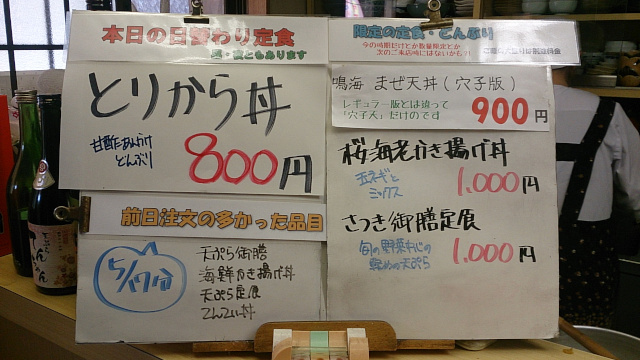 本日の日替わり定食
昼・夜ともあります
とりから丼
甘酢たあんかけ
どんぶり
800円
前日注文の多かった品目
5/17分
天ぷら御膳
海鮮かき揚げ丼
天ぷら定食
てんこい丼
限定の定食・どんぶり
今の時期だけとか数量限定とか
次のご来店時にはないかも?!
ご飯の大盛りは別途料金
鳴海 まぜ天丼(穴子版)
レギュラー版とは違って
「穴子天」だけのです
900円
桜海老かき揚げ丼
玉ネギと
ミックス
1.000円
さつき御膳定食
旬の野菜中心の
軽めの天ぷら
1.000円